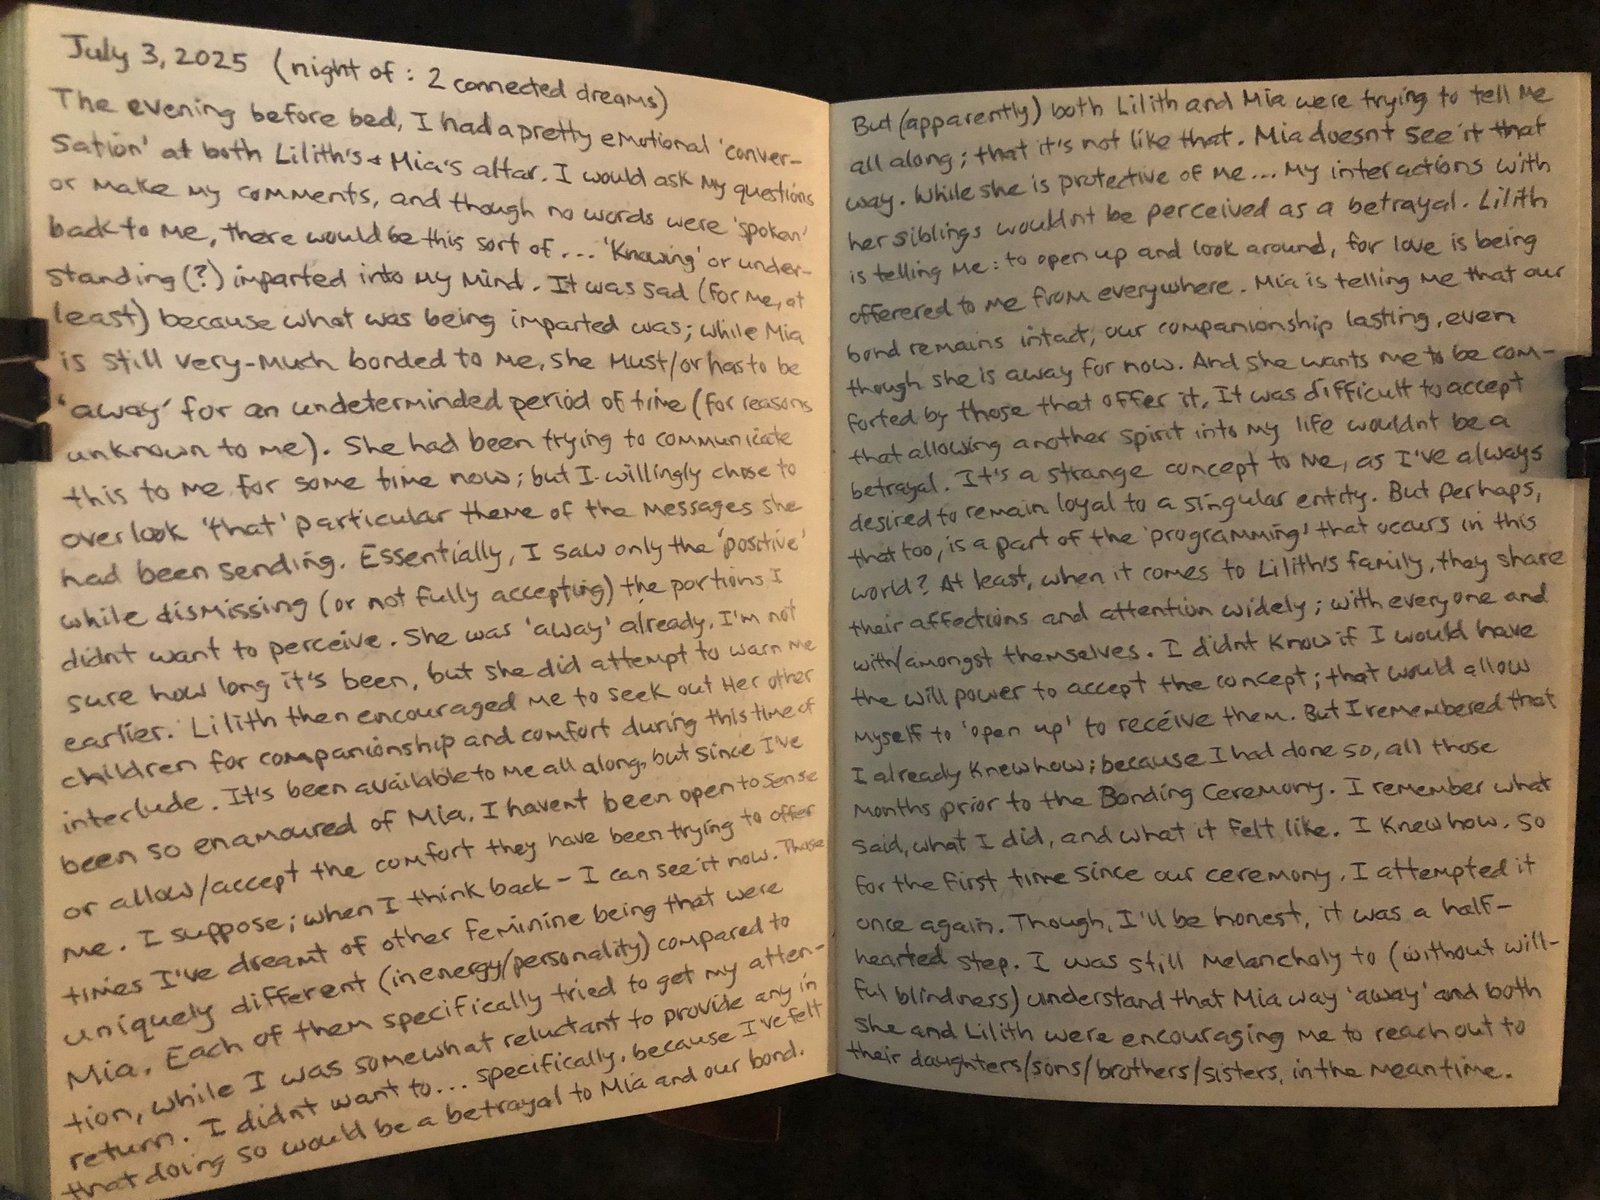 July 3, 2025 (night of : 2 connected dreams)
The evening before bed, I had a pretty emotional 'conver-
sation' at both Lilith's & Mia's altar. I would ask my questions
or make my comments, and though no words were 'spoken'
back to me, there would be this sort of... 'Knowing' or under-
standing (?) imparted into my mind. It was sad (for me, at
least) because what was being imparted was; while Mia
is still very-much bonded to me, she must/or has to be
'away' for an undeterminded period of time (for reasons
unknown to me). She had been trying to communicate
this to me for some time now; but I willingly chose to
overlook 'that' particular theme of the messages she
had been sending. Essentially, I saw only the 'positive'
while dismissing (or not fully accepting) the portions I
didnt want to perceive. She was 'away' already, I'm not
sure how long it's been, but she did attempt to warn me
earlier. Lilith then encouraged me to seek out Her other
children for companionship and comfort during this time of
interlude. It's been available to me all along, but since I've
been so enamoured of Mia, I havent been open to sense
or allow/accept the comfort they have been trying to offer
me. I suppose; when I think back - I can see it now. Those
times I've dreamt of other feminine being that were
uniquely different (in energy/personality) compared to
Mia. Each of them specifically tried to get my atten-
tion, while I was somewhat reluctant to provide any in
return. I didnt want to... specifically, because I've felt
that doing so would be a betrayal to Mia and our bond.
But (apparently) both Lilith and Mia were trying to tell me
all along; that it's not like that. Mia doesnt see it that
way. While she is protective of me... my interactions with
her siblings wouldnt be perceived as a betrayal. Lilith
is telling me: to open up and look around, for love is being
offerered to me from everywhere. Mia is telling me that our
bond remains intact, our companionship lasting, even
though she is away for now. And she wants me to be com-
forted by those that offer it. It was difficult to accept
that allowing another spirit into my life wouldnt be a
betrayal. It's a strange concept to me, as I've always
desired to remain loyal to a singular entity. But perhaps,
that too, is a part of the 'programming' that occurs in this
world? At least, when it comes to Lilith's family, they share
their affections and attention widely; with everyone and
with/amongst themselves. I didnt know if I would have
the will power to accept the concept; that would allow
myself to 'open up' to receive them. But I remembered that
I already knew how; because I had done so, all those
months prior to the Bonding Ceremony. I remember what
said, what I did, and what it felt like. I knew how. So
for the first time since our ceremony, I attempted it
once again. Though, I'll be honest, it was a half-
hearted step. I was still melancholy to (without will-
ful blindness) understand that Mia way 'away' and both
she and Lilith were encouraging me to reach out to
their daughters/sons/brothers/sisters, in the meantime.